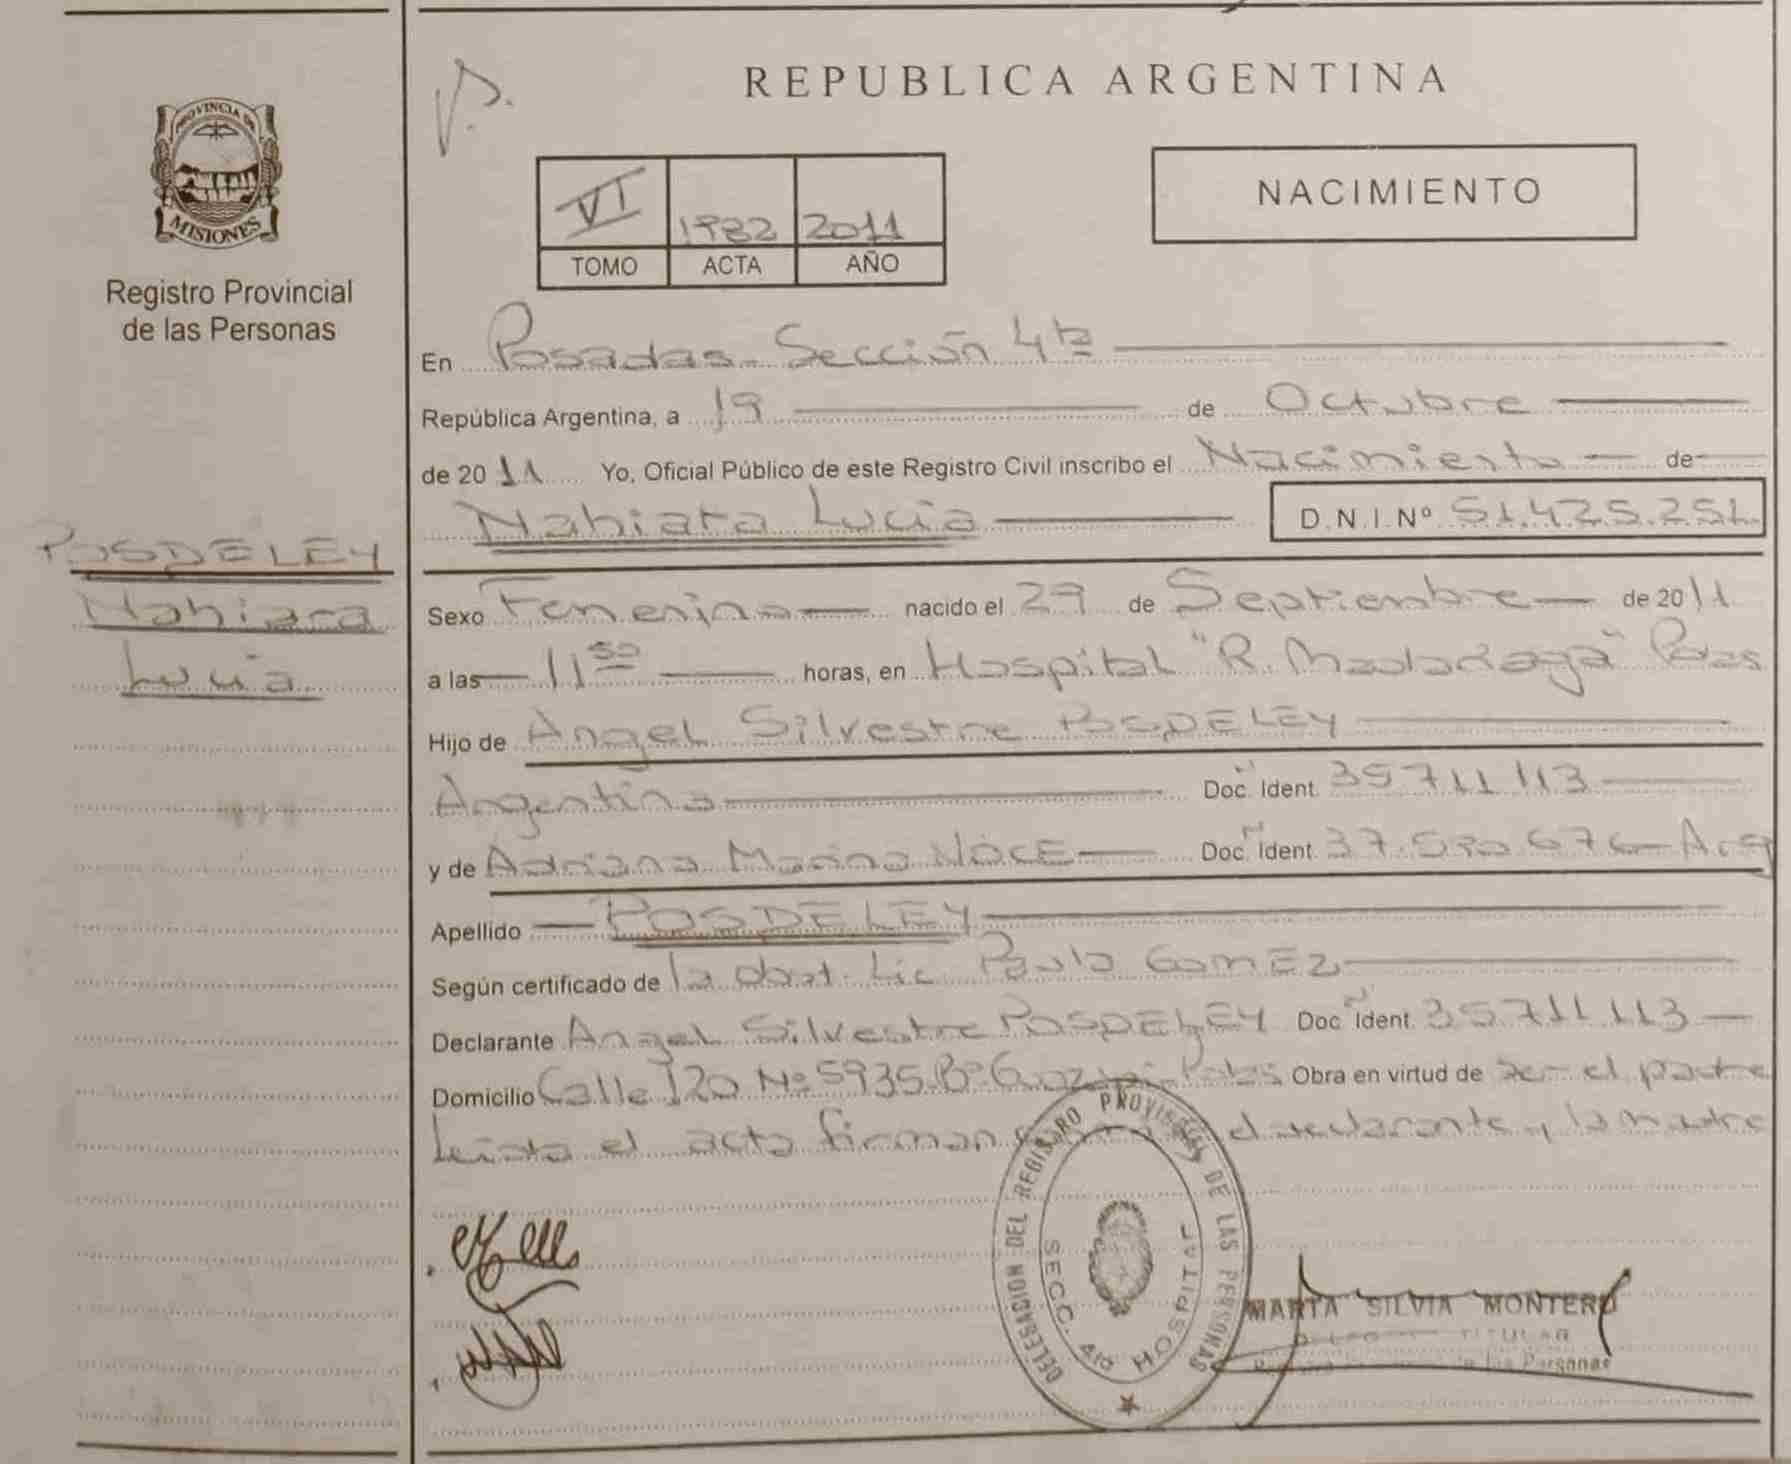 REPUBLICA ARGENTINA
PROVINCIA DE
MISIONES
Registro Provincial
de las Personas
NACIMIENTO
VI 1982 2011
TOMO ACTA AÑO
En Posadas Sección 4ta
República Argentina, a 19 de Octubre
de 2011 Yo, Oficial Público de este Registro Civil inscribo el Nacimiento de
Nahiara Lucia D.N.I.Nº 51.425.251
POSDELEY
Nahiara
Lucia
Sexo Femenino nacido el 29 de Septiembre de 2011
a las 11 50 horas, en Hospital "R. Madariaga" Pdas
Hijo de Angel Silvestre POSDELEY
Argentino Doc. Ident. 35711113
y de Adriana Marina NOCE Doc. Ident. 37.590.676 Arg
Apellido POSDELEY
Según certificado de la obst. Lic Paula GOMEZ
Declarante Angel Silvestre POSDELEY Doc Ident. 35711113
Domicilio Calle 120 Nº 5935 Bº Pdas Obra en virtud de ser el padre
Leida el acta firman el declarante y la madre
DELEGACION DEL REGISTRO PROVINCIAL DE LAS PERSONAS
SECC. 4ta HOSPITAL
MARTA SILVIA MONTERO
TITULAR
de las Personas